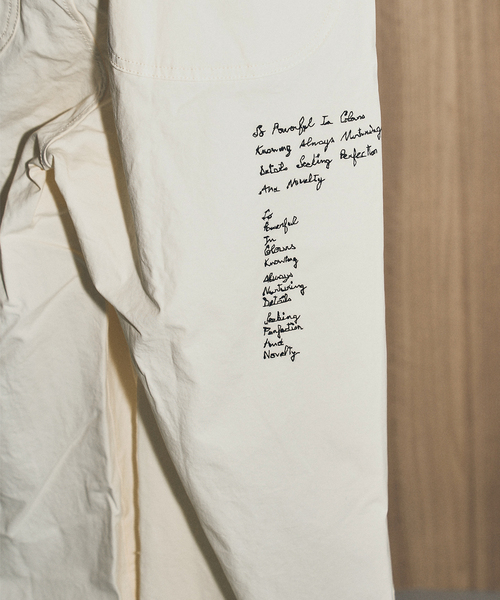 So Powerful In Colors
Knowing Always Nurturing
Details Seeking Perfection
And Novelty
So
Powerful
In
Colours
Knowing
Always
Nurturing
Details
Seeking
Perfection
And
Novelty